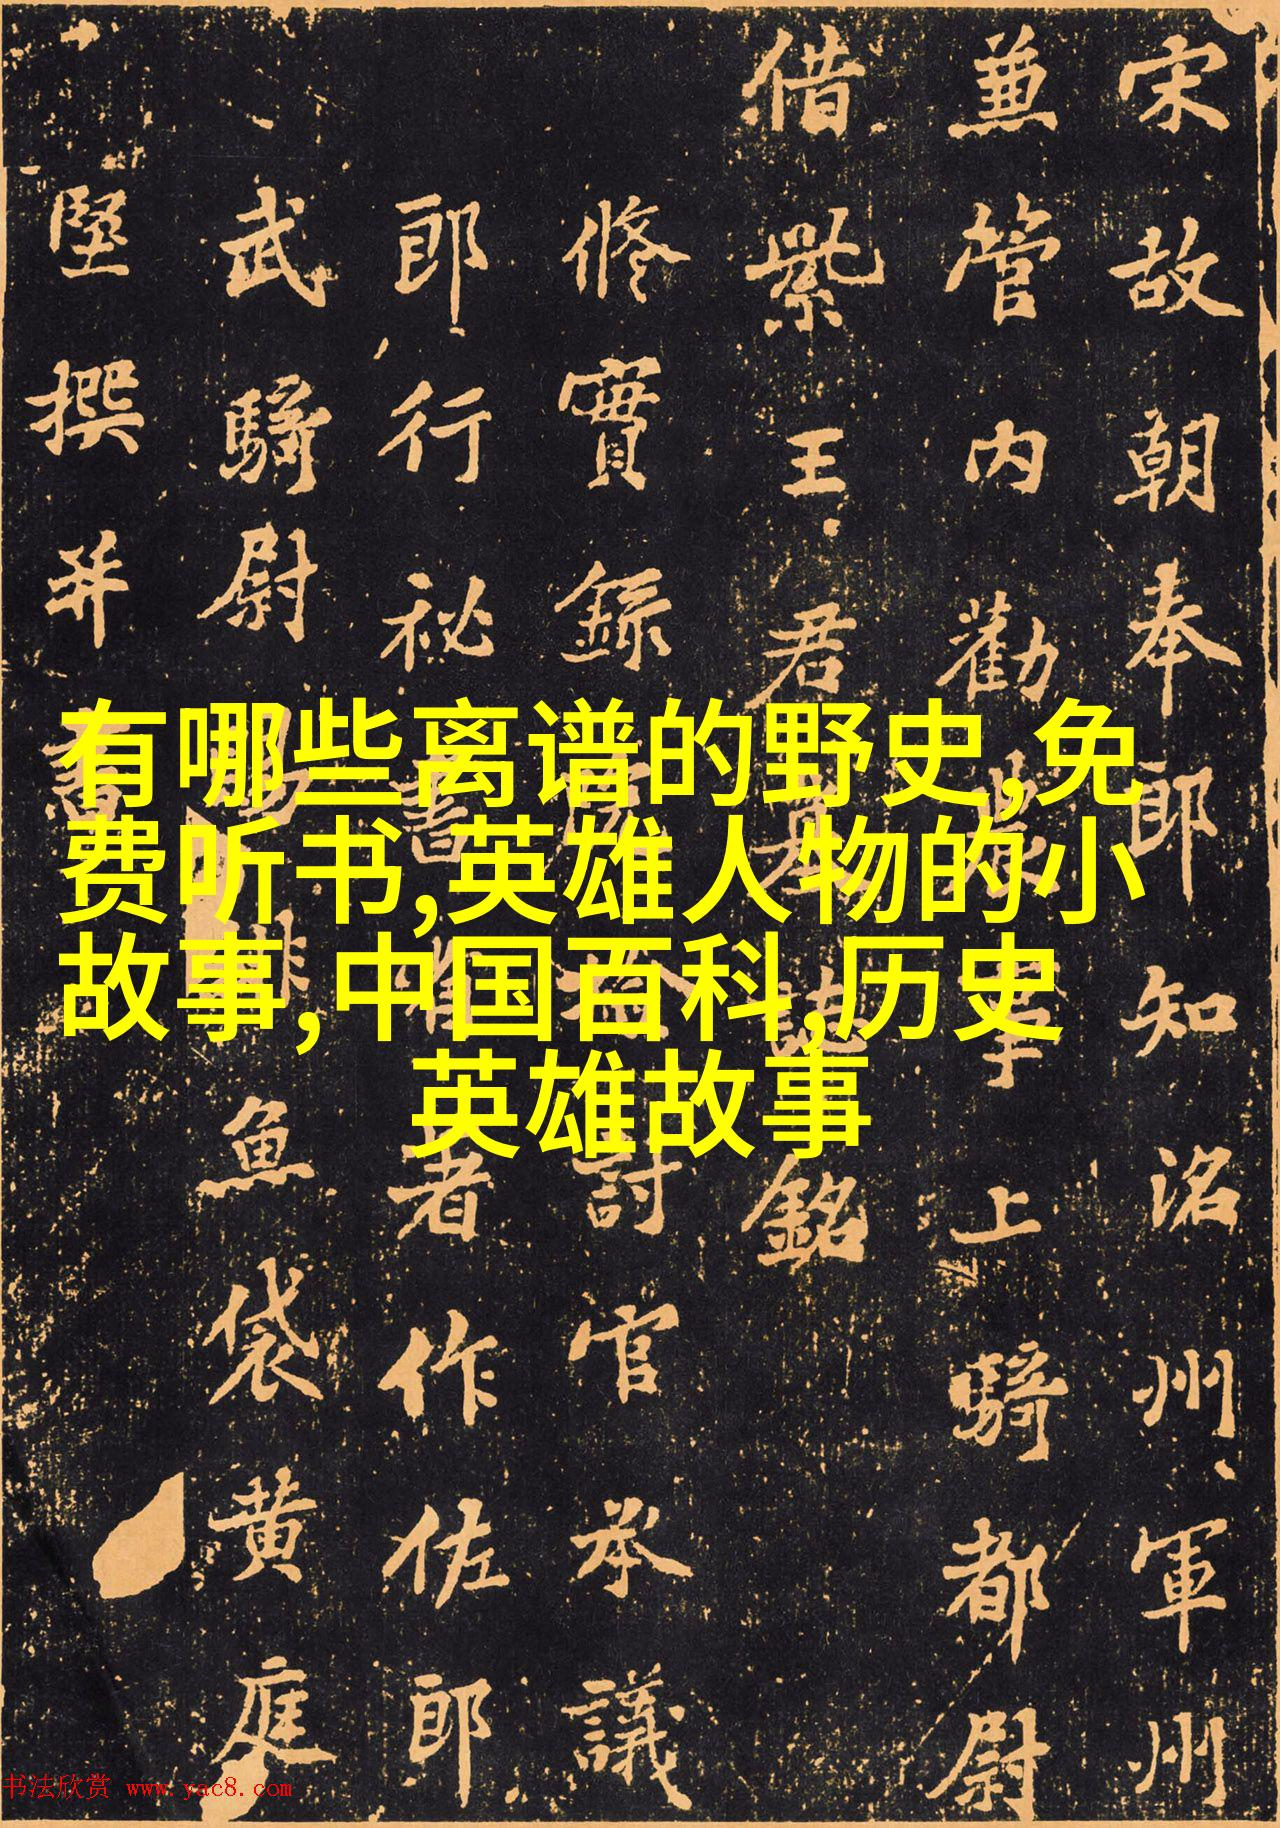 宋故朝奉郎知洺州軍州
兼管内勸農事上騎都尉
借紫王君墓誌銘
修實錄討官承議
郎行秘書作佐郎
武騎尉魚袋黄庭
堅撰并書
有哪些离谱的野史,免
费听书,英雄人物的小
故事,中国百科,历史
英雄故事
书法欣赏 www.yac8.com